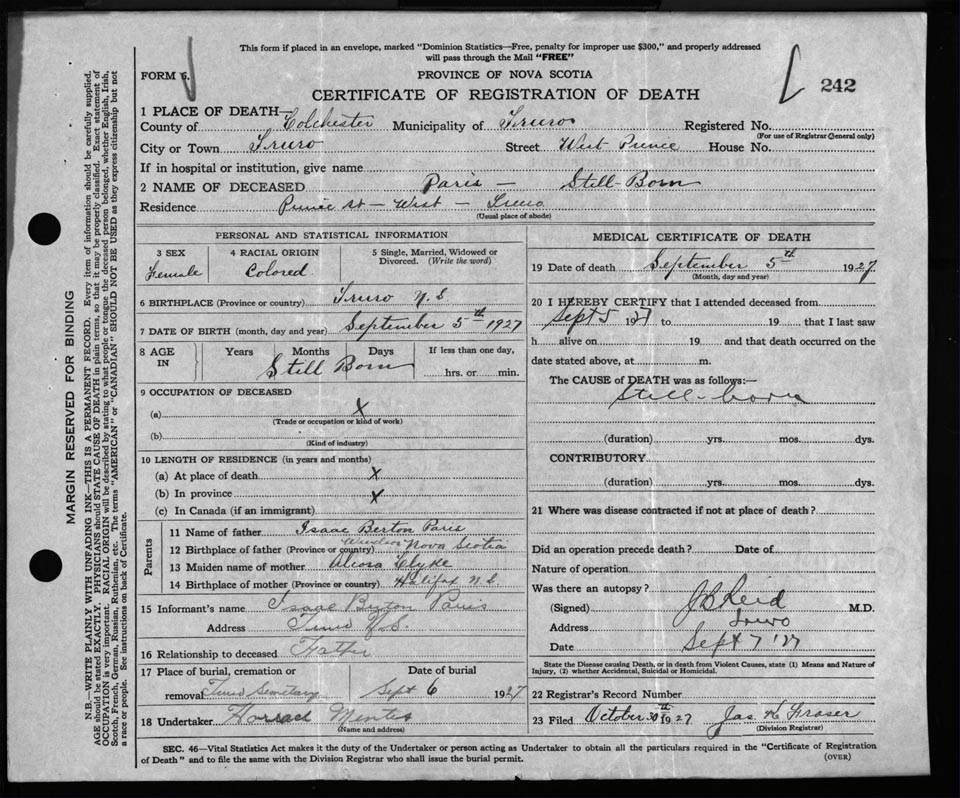 This form if placed in an envelope, marked "Dominion Statistics—Free, penalty for improper use $300," and properly addressed
will pass through the Mail "FREE"
FORM 6.
PROVINCE OF NOVA SCOTIA
CERTIFICATE OF REGISTRATION OF DEATH
242
1 PLACE OF DEATH—
County of Colchester Municipality of Truro Registered No.
(For use of Registrar General only)
City or Town Truro Street West Prince House No.
If in hospital or institution, give name
2 NAME OF DECEASED Paris — Still-Born
Residence Prince St — West — Truro
(Usual place of abode)
PERSONAL AND STATISTICAL INFORMATION
3 SEX 4 RACIAL ORIGIN 5 Single, Married, Widowed or
Divorced. (Write the word)
Female Colored
6 BIRTHPLACE (Province or country) Truro N.S.
7 DATE OF BIRTH (month, day and year) September 5th 1927
8 AGE IN Years Months Days If less than one day,
Still Born hrs. or min.
9 OCCUPATION OF DECEASED
(a) X
(Trade or occupation or kind of work)
(b)
(Kind of industry)
10 LENGTH OF RESIDENCE (in years and months)
(a) At place of death X
(b) In province X
(c) In Canada (if an immigrant)
Parents
11 Name of father Isaac Berton Paris
12 Birthplace of father (Province or country) Windsor Nova Scotia
13 Maiden name of mother Clyke
14 Birthplace of mother (Province or country) Halifax N.S.
15 Informant's name Isaac Burton Paris
Address Truro N.S.
16 Relationship to deceased Father
17 Place of burial, cremation or Date of burial
removal Truro Semetary Sept 6 1927
18 Undertaker Mentes
(Name and address)
MEDICAL CERTIFICATE OF DEATH
19 Date of death September 5th 1927
(Month, day and year)
20 I HEREBY CERTIFY that I attended deceased from
Sept 5 1927 to 19 that I last saw
h alive on 19 and that death occurred on the
date stated above, at m.
The CAUSE of DEATH was as follows:—
Still-born
(duration) yrs. mos. dys.
CONTRIBUTORY
(duration) yrs. mos. dys.
21 Where was disease contracted if not at place of death?
Did an operation precede death? Date of
Nature of operation
Was there an autopsy?
(Signed) J B Reid M.D.
Address Truro
Date Sept 7 '27
State the Disease causing Death, or in death from Violent Causes, state (1) Means and Nature of
Injury, (2) whether Accidental, Suicidal or Homicidal.
22 Registrar's Record Number
23 Filed October 30th 1927 Jas. Fraser
(Division Registrar)
SEC. 46—Vital Statistics Act makes it the duty of the Undertaker or person acting as Undertaker to obtain all the particulars required in the "Certificate of Registration
of Death" and to file the same with the Division Registrar who shall issue the burial permit.
(OVER)
MARGIN RESERVED FOR BINDING
N.B.—WRITE PLAINLY WITH UNFADING INK—THIS IS A PERMANENT RECORD. Every item of information should be carefully supplied.
AGE should be stated EXACTLY. PHYSICIANS should STATE CAUSE OF DEATH in plain terms, so that it may be properly classified. Exact statement of
OCCUPATION is very important. RACIAL ORIGIN will be described by stating to what people or tongue the deceased person belonged, whether English, Irish,
Scotch, French, German, Russian, Ruthenian, etc. The terms "AMERICAN" or "CANADIAN" SHOULD NOT BE USED as they express citizenship but not
a race or people. See instructions on back of Certificate.